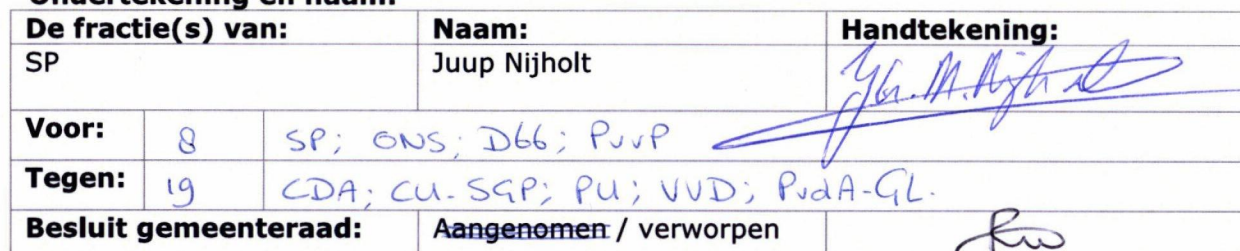 Ondertekening en naam:
De fractie(s) van: Naam: Handtekening:
SP Juup Nijholt
Voor: 8 SP; ONS; D66; PvvP
Tegen: 19 CDA; CU-SGP; PU; VVD; PvdA-GL.
Besluit gemeenteraad: Aangenomen / verworpen